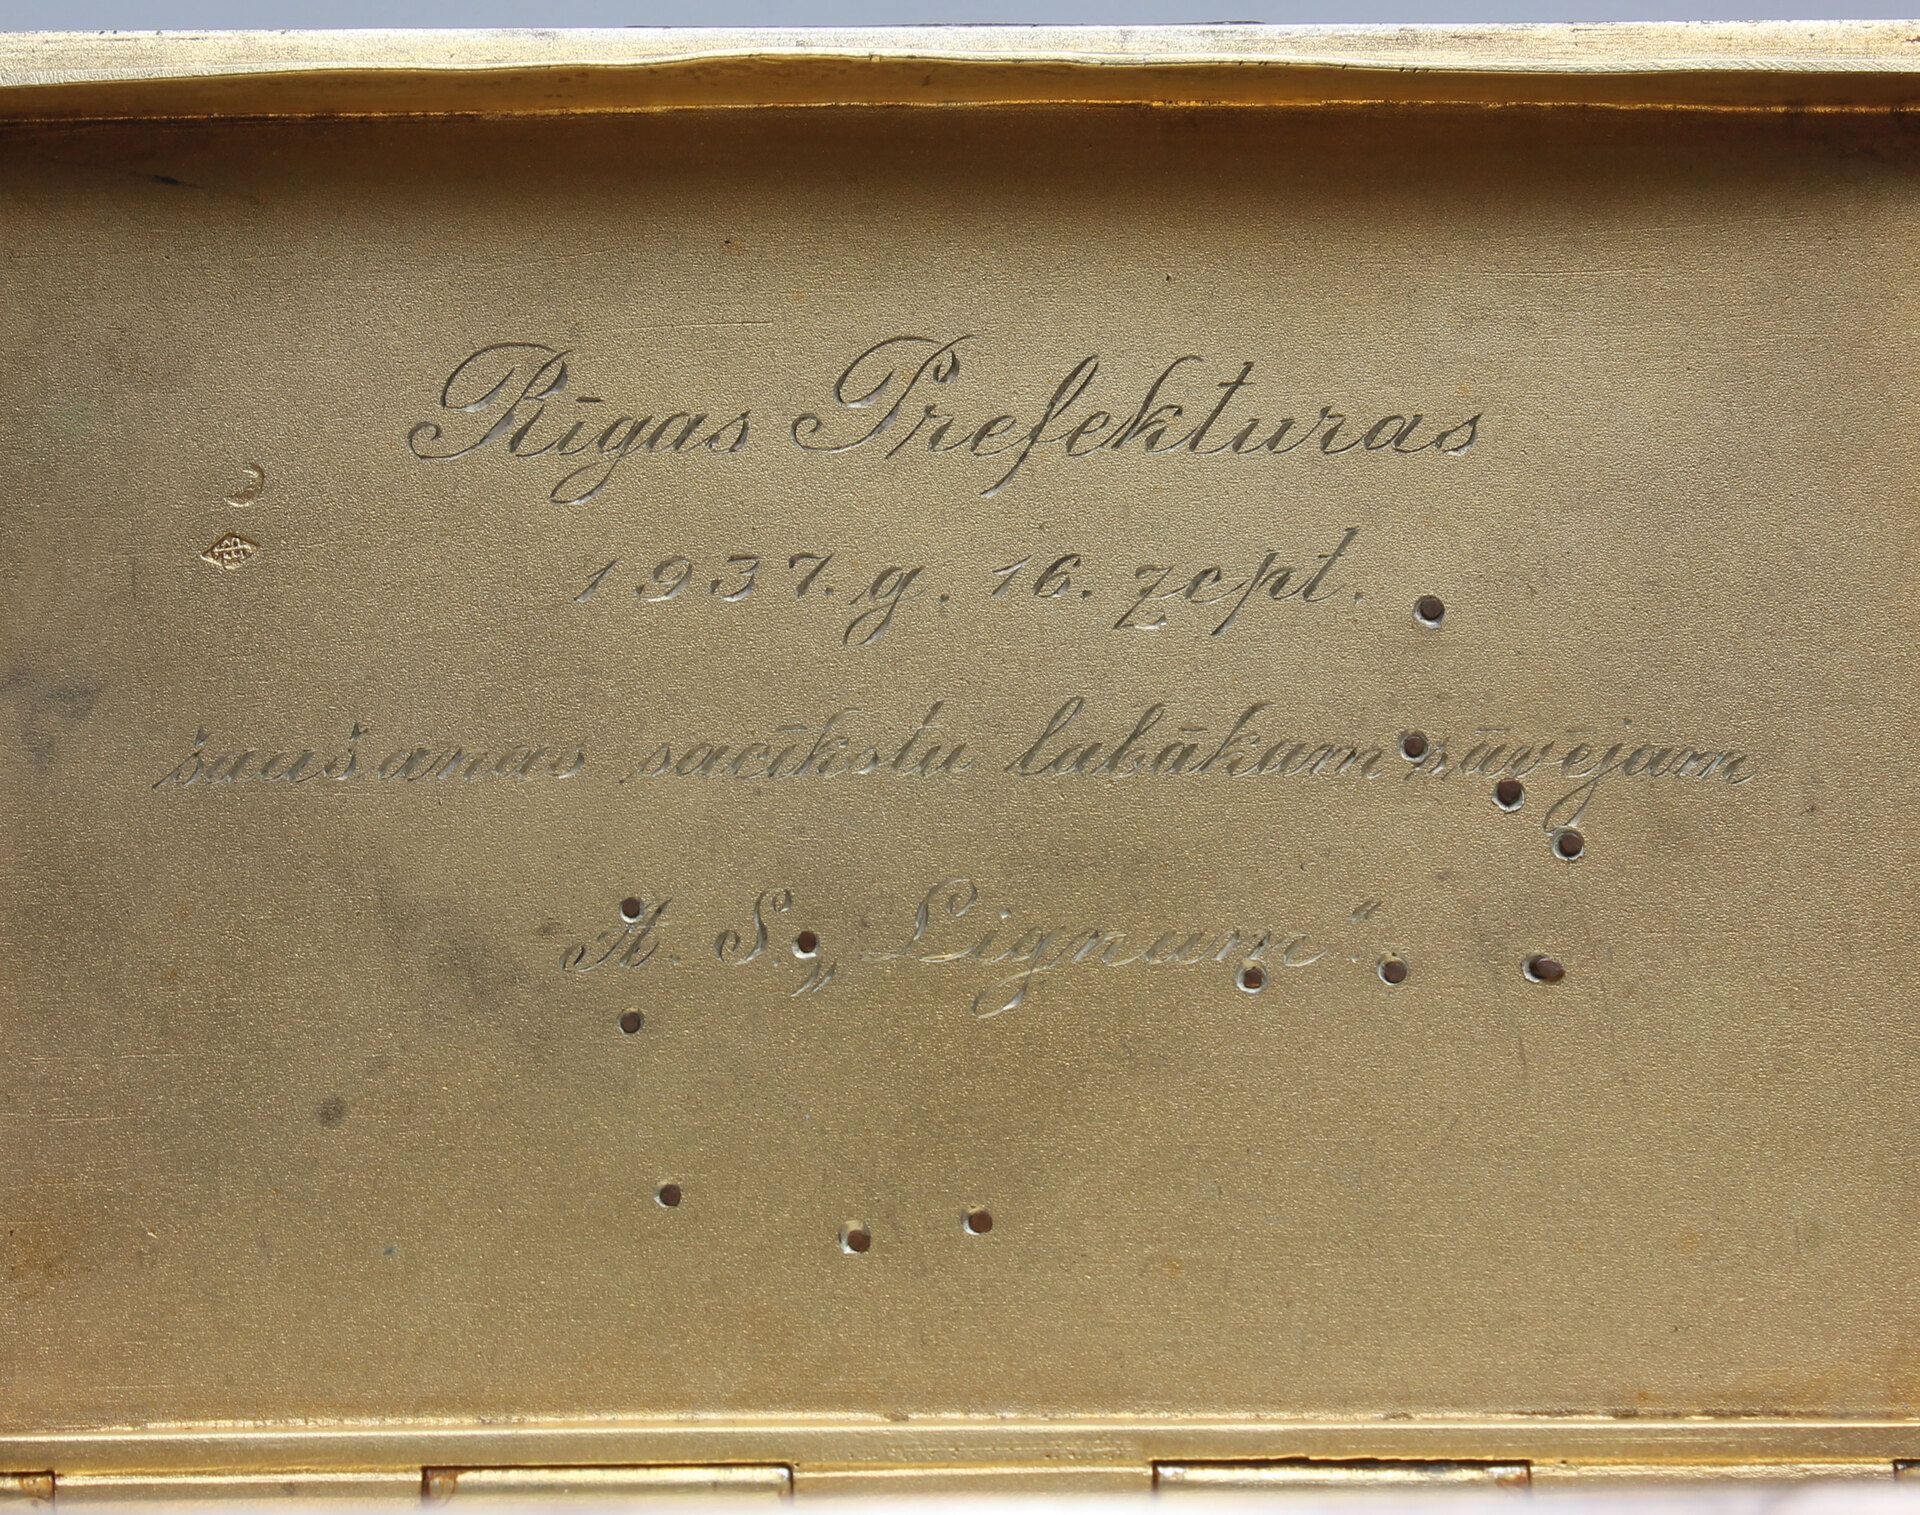 Rīgas Prefekturas
1937. g. 16. zept.
šaušanas sacīkstu labākam šāvējam
A. S. „Lignum“.